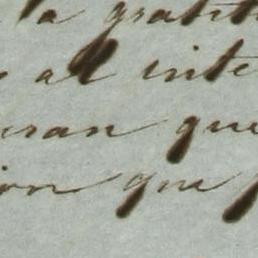 la gratit
al inte
eran que
ion que